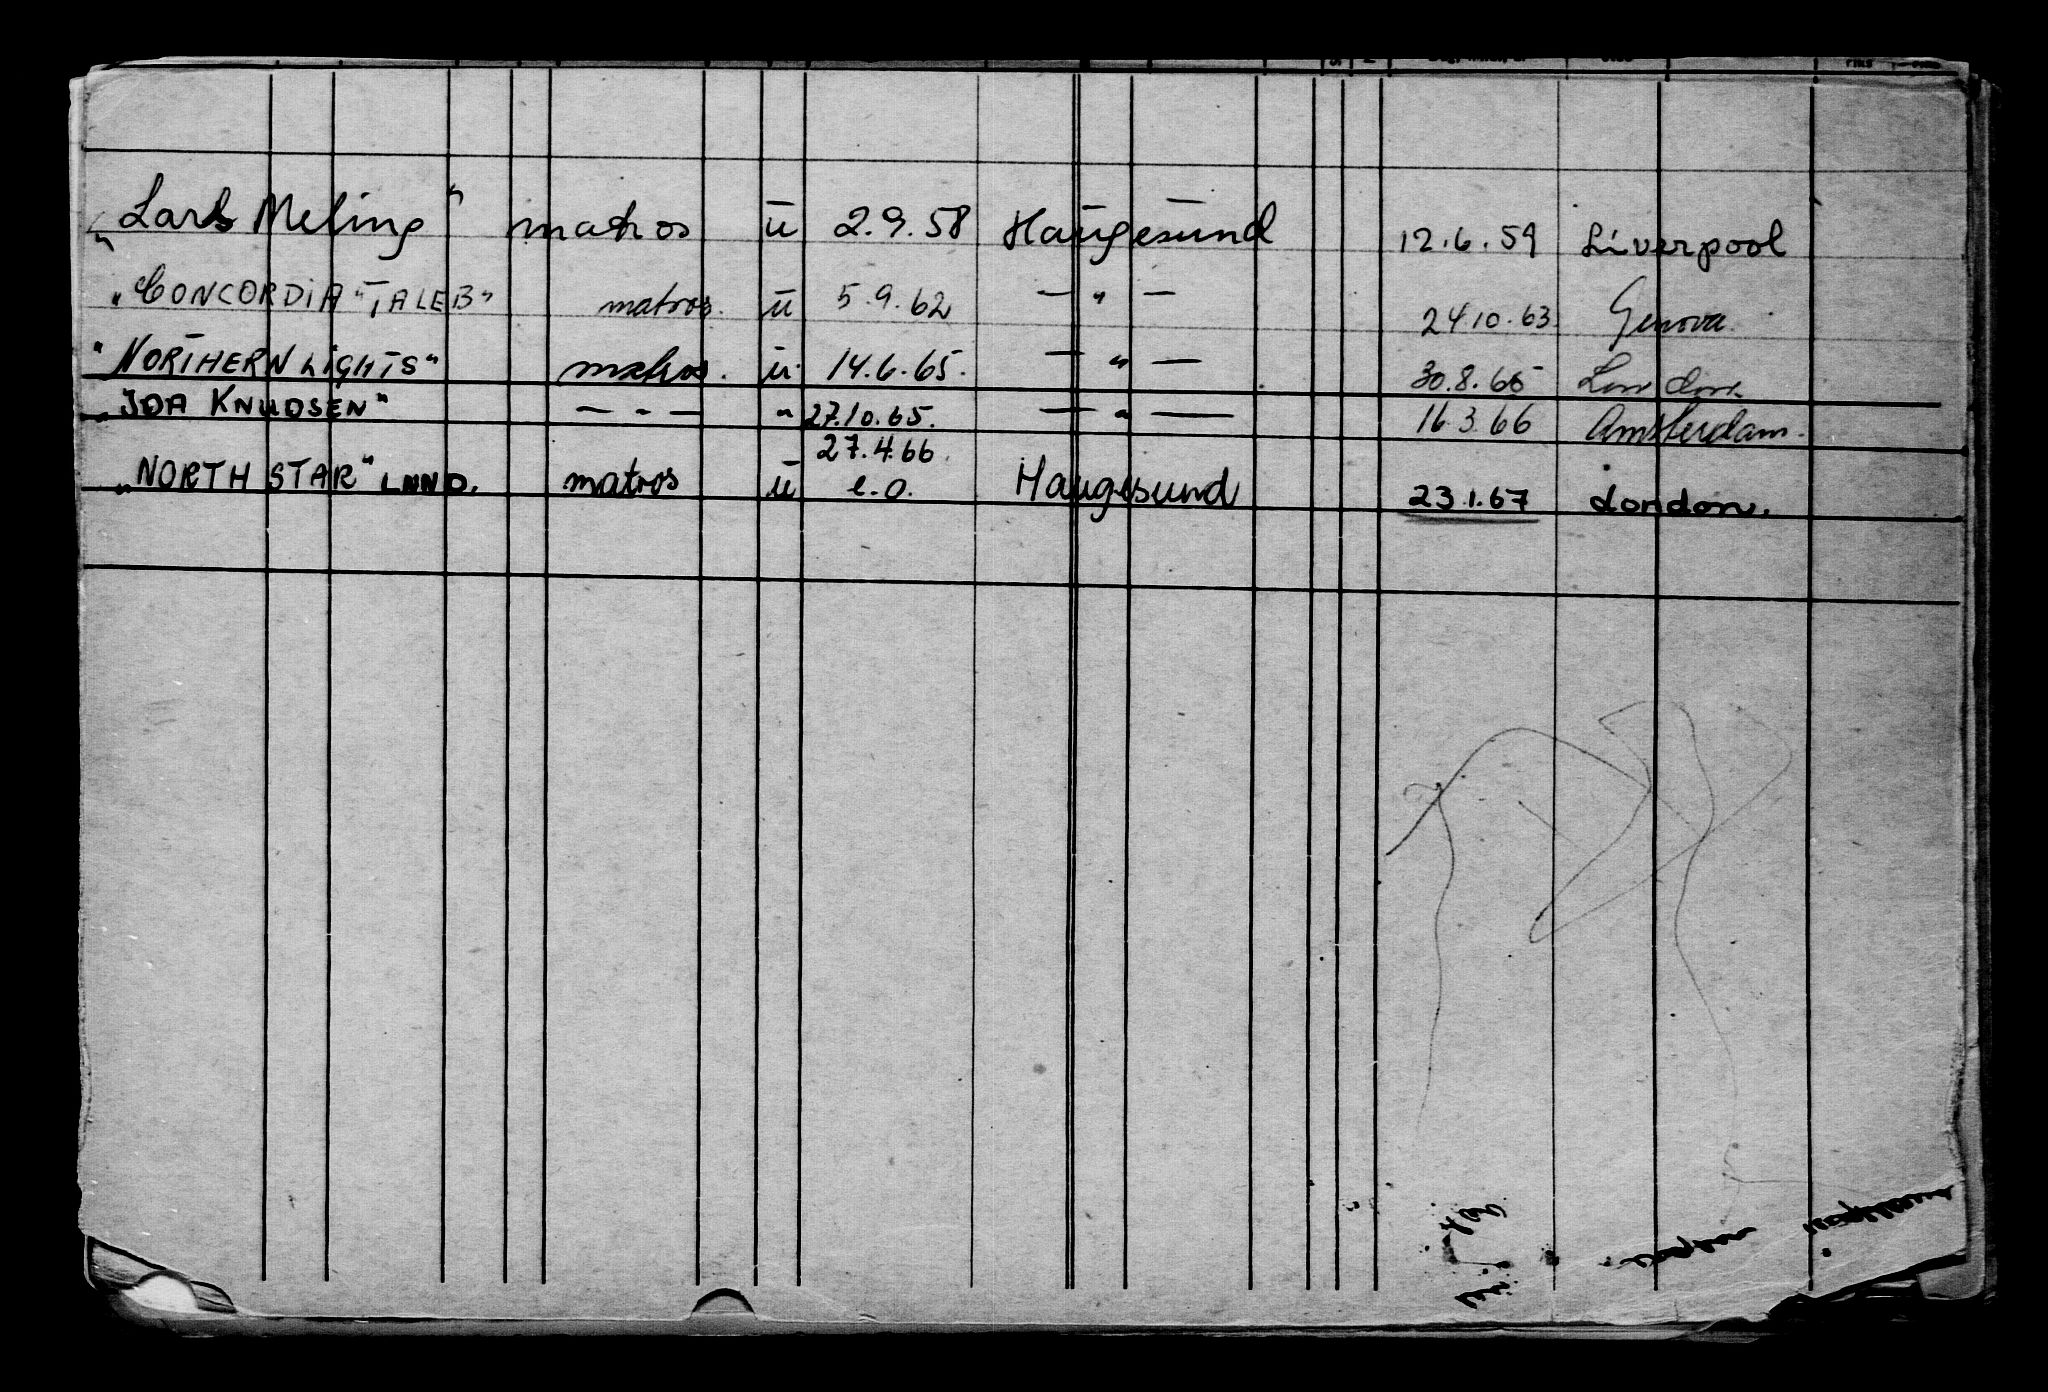 "Lars Meling" matros ü 2.9.58 Haugesund 12.6.59 Liverpool
"CONCORDIA "TALEB" matros. ü 5.9.62 — " — 24.10.63. Genova.
"NORTHERN LIGHTS" matros. ü. 14.6.65. — " — 30.8.65 London
"IDA KNUDSEN" — " — " 27.10.65. — " — 16.3.66 Amsterdam.
27.4.66.
"NORTH STAR" matros ü e.o. Haugesund 23.1.67 London.